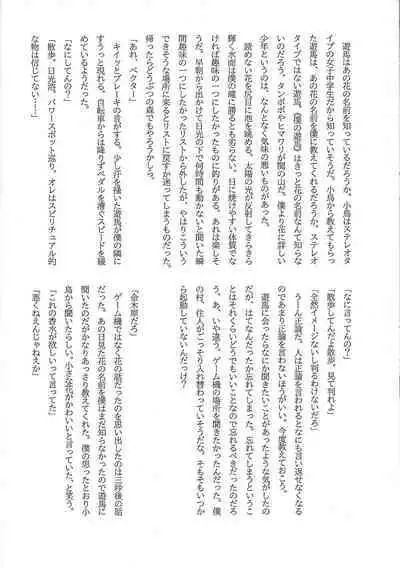 遊馬はあの花の名前を知っているだろうか。小鳥はステレオタ
イプの女子中学生だから知っていそうだ。小鳥から教えてもらっ
た遊馬は、あの花の名前を僕に教えてくれるだろうか。ステレオ
タイプではない遊馬。《僕の遊馬》はきっと花の名前なんて知らな
いのだろう。タンポポやヒマワリが関の山だ。僕より花に詳しい
少年というのは、なんとなく気味の悪いものがあった。
読めない花を尻目に池を眺める。太陽の光が反射してきらきら
輝く水面は僕の瞳に勝るとも劣らない。日に焼けやすい体質でな
ければ趣味の一つにしたかったものに釣りがある。あれは楽しそ
うだ。早朝から出かけて日光の下で何時間も動かないと聞いた瞬
間趣味の一つにしたかったリストから外したが、やはりこういう
できそうな場所に来るとリストに戻すか迷ってしまうものだった。
帰ったらどうぶつの森でもやろうかしら。
「あれ、ベクター」
キイッとブレーキの音がする。少し汗を掻いた遊馬が僕の隣に
すうっと現れる。自転車からは降りずペダルを漕ぐスピードを緩
めているようだった。
「なにしてんの？」
「散歩、日光浴、パワースポット巡り。オレはスピリチュアル的
な物は信じてない……」
「なに言ってんの？」
「散歩してんだよ散歩、見て判れよ」
「全然イメージないし判るわけないだろ」
うーん正論だ。人は正論を言われるとなにも言い返せなくなる
のであまり正論を言わないほうがいい。今度教えておこう。
遊馬に会ったらなにか聞きたいことがあったような気がしたの
だが、はてなんだったか忘れてしまった。忘れてしまうというこ
とはそれくらいどうでもいいことなので忘れるべきだったのだろ
う。あ、いや違う。ゲーム機の場所を聞きたかったんだった。僕
の村、住人がごっそり入れ替わっていそうだな。そもそもいつか
ら起動していないんだっけ？
「金木犀だろ」
ゲーム機ではなく花の話だったのを思い出したのは三秒後の話
だった。あの日見た花の名前を僕はまだ知らなかったので遊馬に
聞いたのだがかなりあっさり教えてくれた。僕の思ったとおり小
鳥から聞いたらしい。小さな花がかわいいと言っていた、と笑う。
「これの香水が欲しいって言ってた」
「悪くねえんじゃねえか」